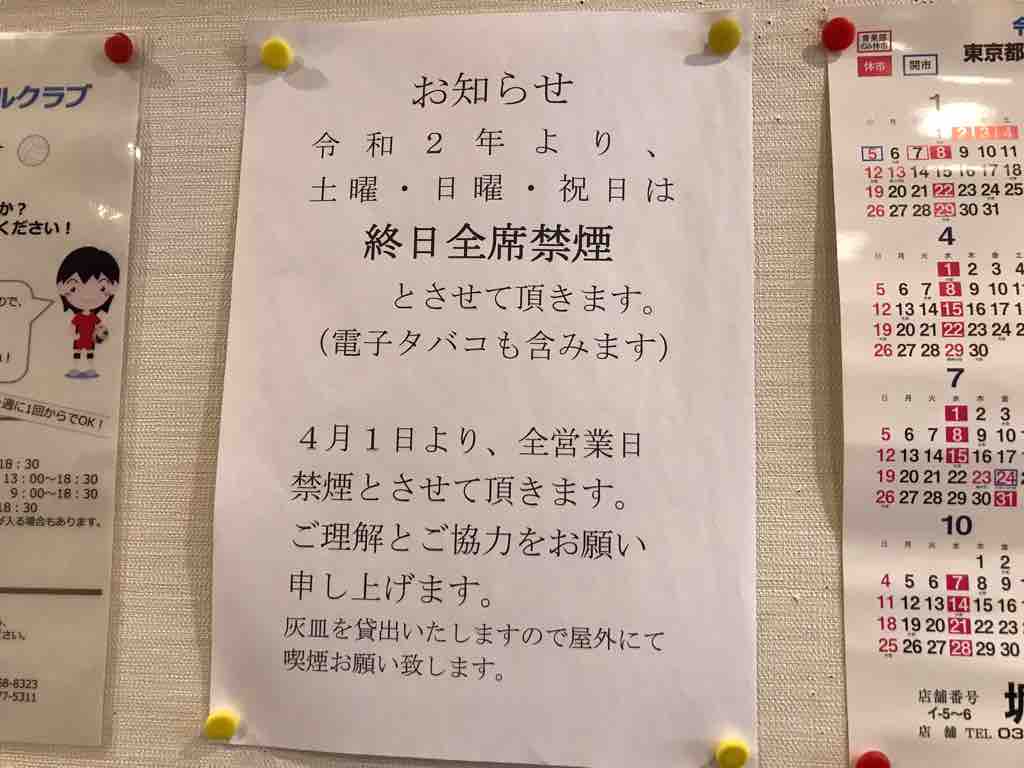 お知らせ
令和２年より、
土曜・日曜・祝日は
終日全席禁煙
とさせて頂きます。
（電子タバコも含みます）
４月１日より、全営業日
禁煙とさせて頂きます。
ご理解とご協力をお願い
申し上げます。
灰皿を貸出いたしますので屋外にて
喫煙お願い致します。
ルクラブ
か？
ください！
ので、
週に1回からでOK！
18：30
13：00～18：30
9：00～18：30
18：30
が入る場合もあります。
ださい。
68-8323
77-5311
休市
開市
東京都
1
2 3 4
5 6 7 8 9 10 11
12 13 14 15 16 17 18
19 20 21 22 23 24 25
26 27 28 29 30 31
4
日 月 火 水 木 金 土
1 2 3 4
5 6 7 8 9 10 11
12 13 14 15 16 17
19 20 21 22 23 24
26 27 28 29 30
7
日 月 火 水 木 金
1 2 3
5 6 7 8 9 10
12 13 14 15 16 17
19 20 21 22 23 24
26 27 28 29 30 31
10
日 月 火 水 木 金
1 2
4 5 6 7 8 9
11 12 13 14 15 16
18 19 20 21 22 23
25 26 27 28 29 30
店舗番号
イ-5～6
店舗 TEL 03